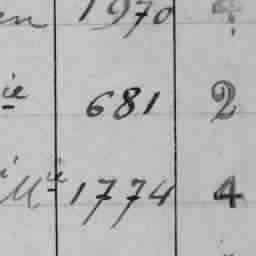 en 1970 4
ie 681 2
Mie 1774 4